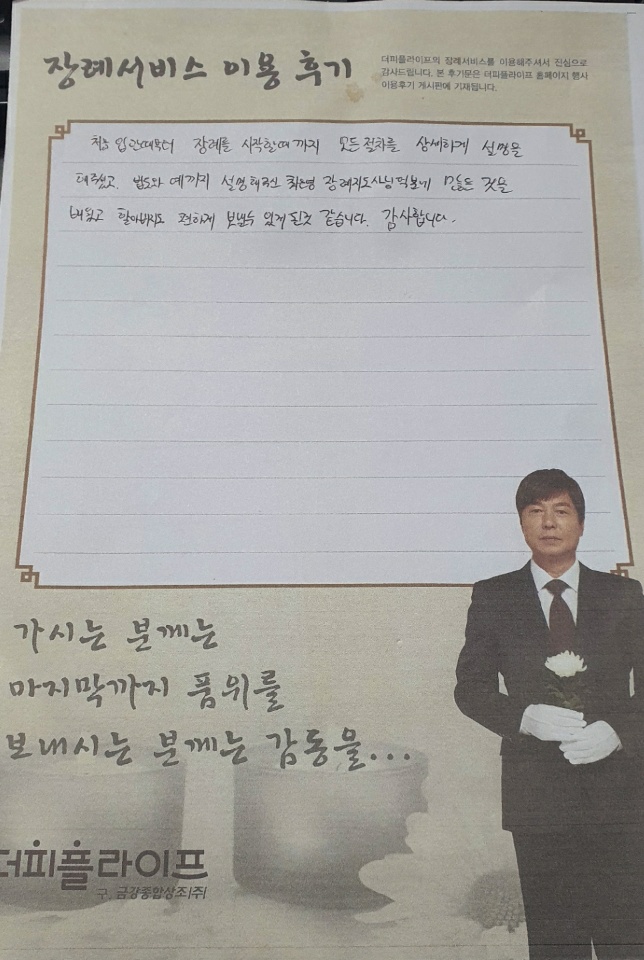 장례서비스 이용 후기
더피플라이프의 장례서비스를 이용해주셔서 진심으로
감사드립니다. 본 후기문은 더피플라이프 홈페이지 행사
이용후기 게시판에 기재됩니다.
처음 입관때부터 장례를 시작할때 까지 모든절차를 상세하게 설명을
해주셨고, 법도와 예까지 설명해주신 장례지도사님 덕분에 많은 것을
배웠고 할아버지도 편하게 보낼수 있게 된것 같습니다. 감사합니다.
가시는 분께는
마지막까지 품위를
보내시는 분께는 감동을...
더피플라이프
구. 금강종합상조(주)